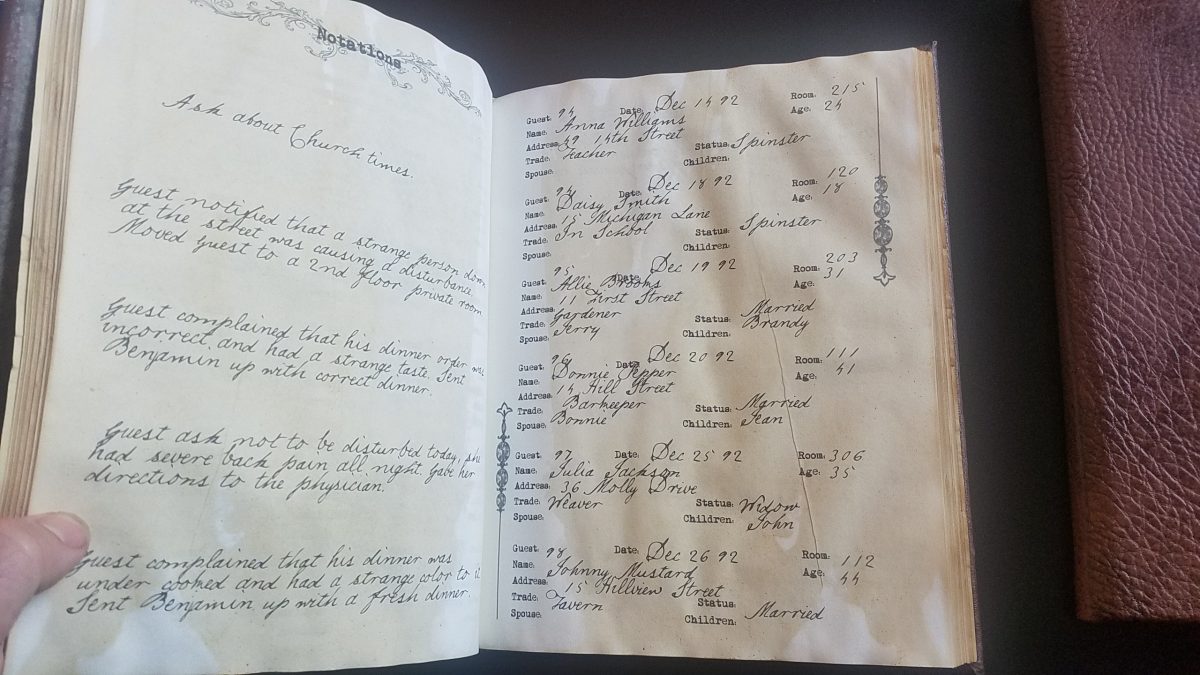 Notations
Ask about Church times.
Guest notified that a strange person down
at the street was causing a disturbance.
Moved guest to a 2nd floor private room
Guest complained that his dinner order was
incorrect and had a strange taste. Sent
Benjamin up with correct dinner.
Guest ask not to be disturbed today, she
had severe back pain all night. Gave her
directions to the physician.
Guest complained that his dinner was
under cooked and had a strange color to it
Sent Benjamin up with a fresh dinner.
Guest: 94 Date: Dec 14 92 Room: 215
Name: Anna Williams Age: 24
Address: 49 14th Street
Trade: Teacher Status: Spinster
Spouse: Children:
Guest: 94 Date: Dec 18 92 Room: 120
Name: Daisy Smith Age: 18
Address: 15 Michigan Lane
Trade: In School Status: Spinster
Spouse: Children:
Guest: 95 Date: Dec 19 92 Room: 203
Name: Allie Brooks Age: 31
Address: 11 First Street
Trade: Gardener Status: Married
Spouse: Jerry Children: Brandy
Guest: 96 Date: Dec 20 92 Room: 111
Name: Donnie Pepper Age: 41
Address: 14 Hill Street
Trade: Barkeeper Status: Married
Spouse: Bonnie Children: Jean
Guest: 97 Date: Dec 25 92 Room: 306
Name: Julia Jackson Age: 35
Address: 36 Molly Drive
Trade: Weaver Status: Widow
Spouse: Children: John
Guest: 98 Date: Dec 26 92 Room: 112
Name: Johnny Mustard Age: 44
Address: 15 Hillview Street
Trade: Tavern Status: Married
Spouse: Children: